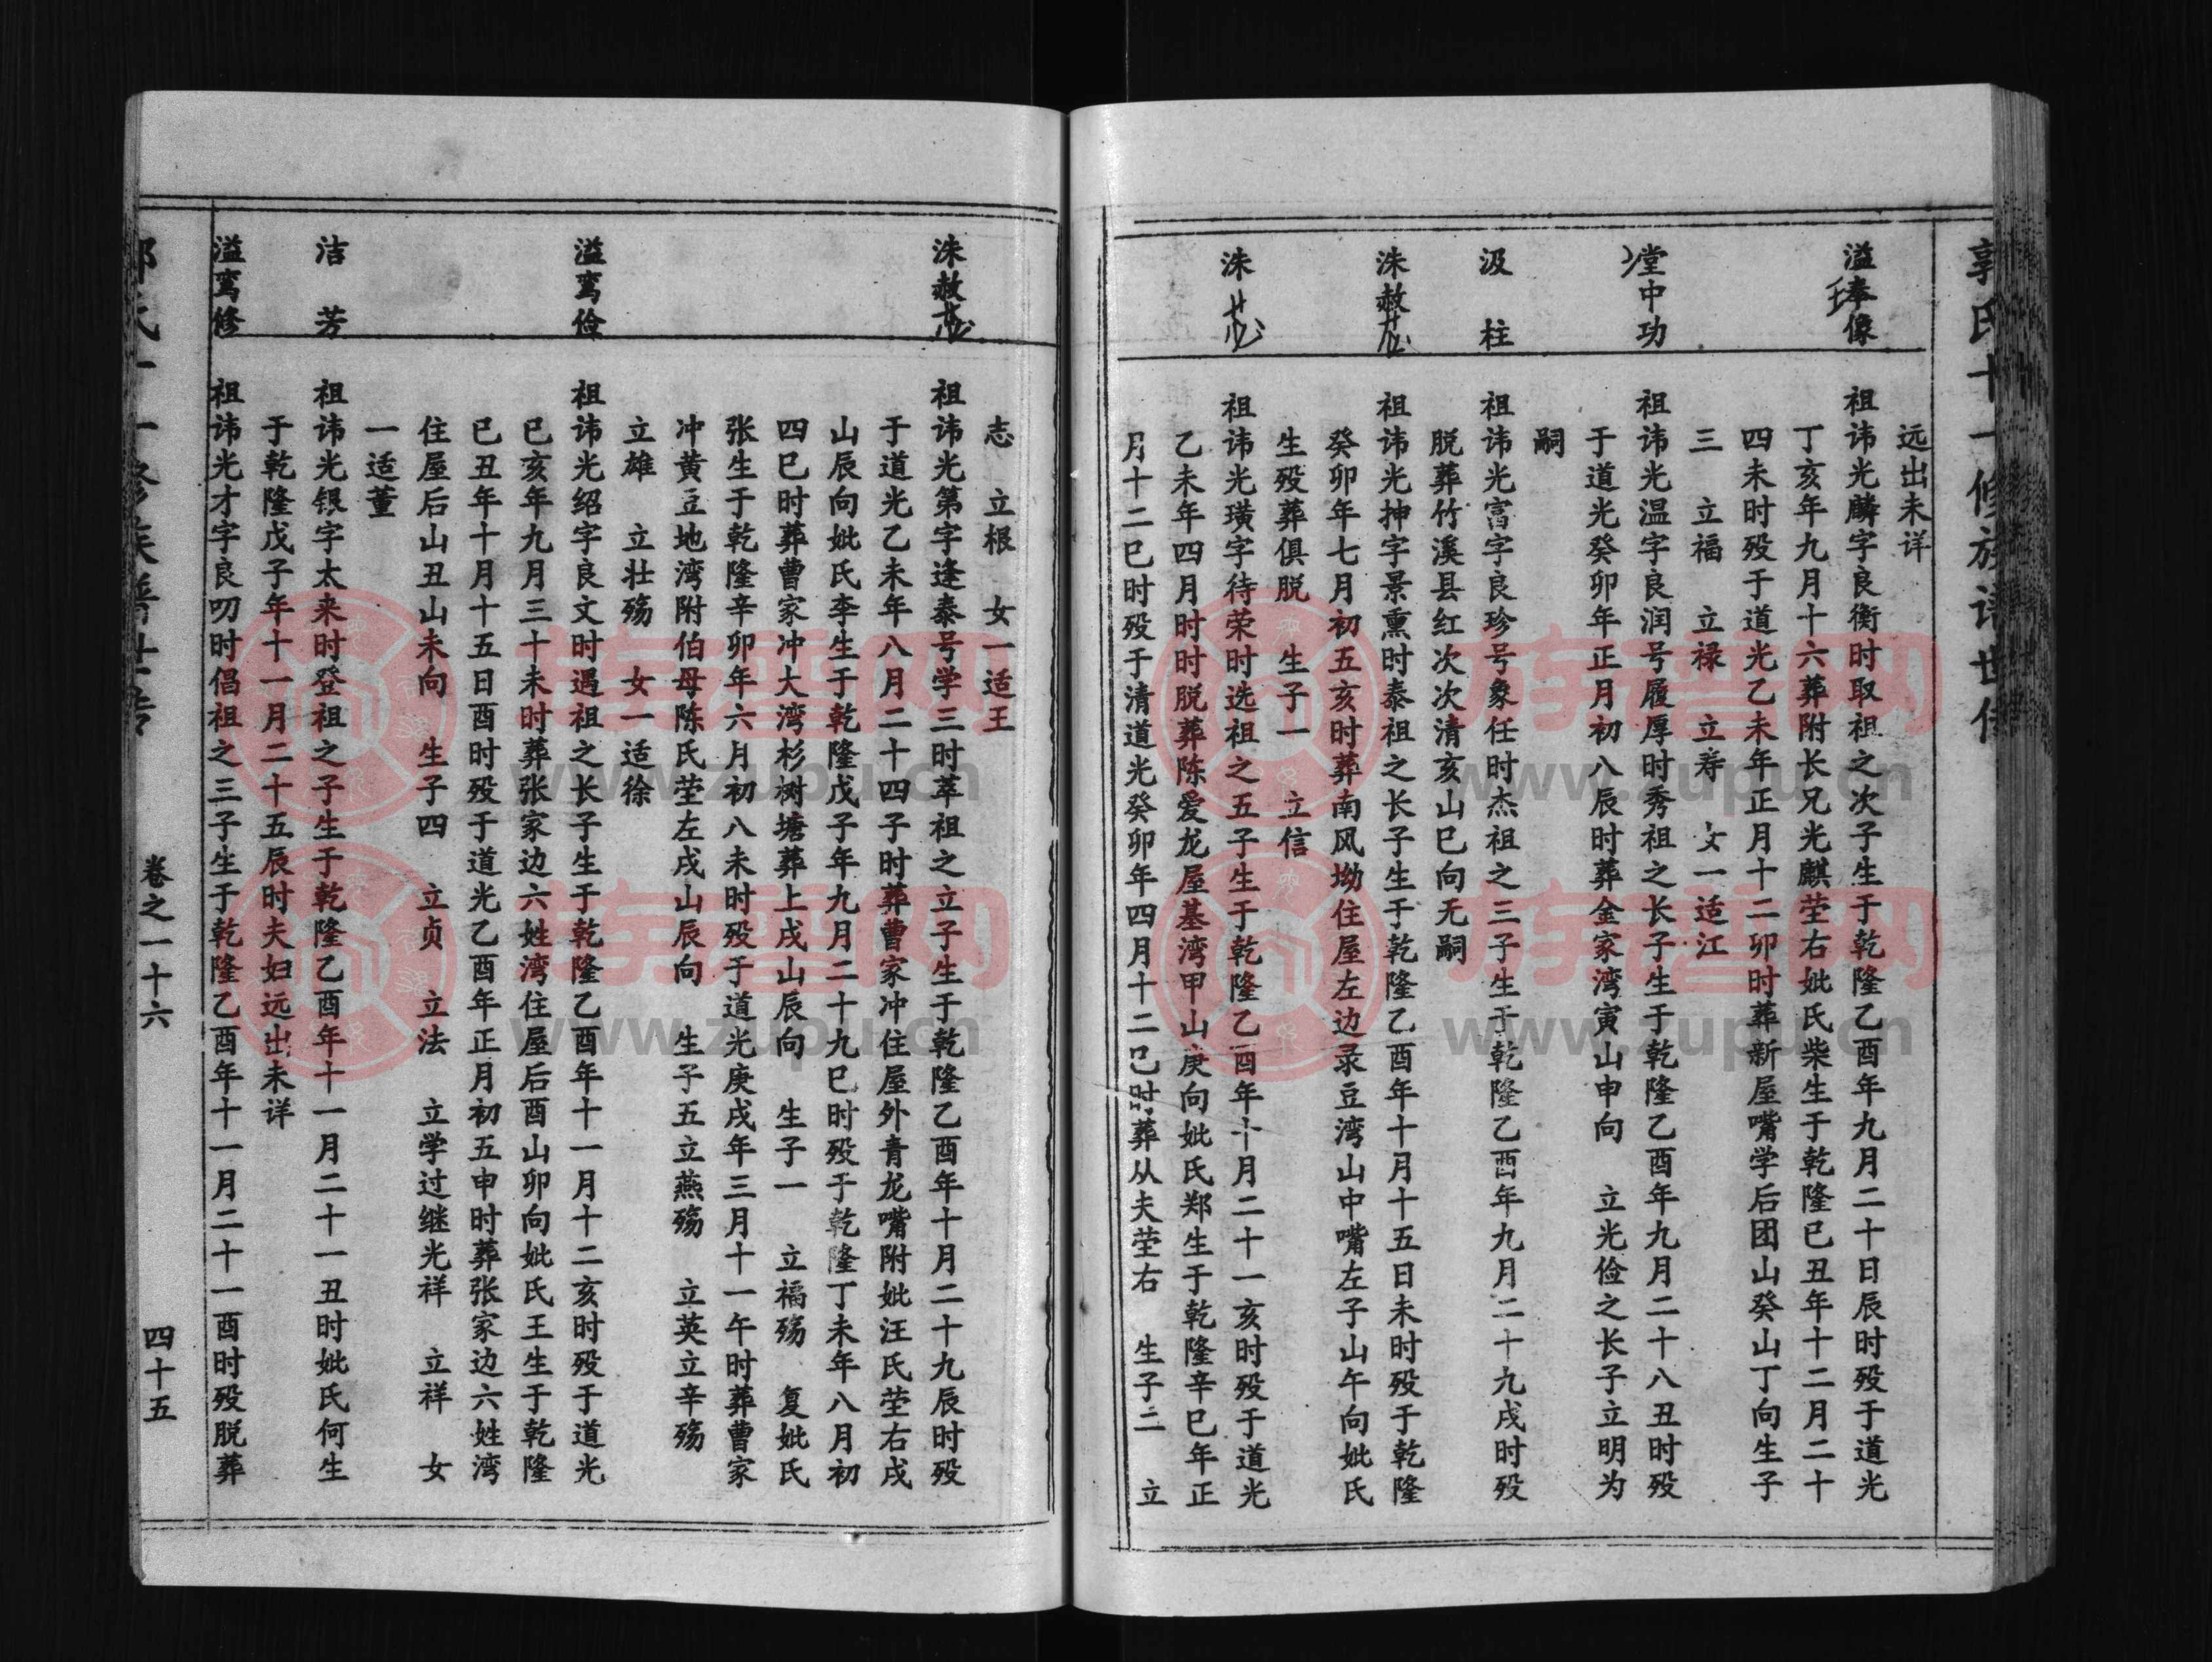 郭氏十一修族谱世传
远出未详
溢奉像
祖讳光麟字良衡时取祖之次子生于乾隆乙酉年九月二十日辰时殁于道光
丁亥年九月十六葬附长兄光麒茔右妣氏柴生于乾隆巳丑年十二月二十
四未时殁于道光乙未年正月十二卯时葬新屋嘴学后团山癸山丁向生子
三 立福 立禄 立寿 女一适江
堂中功
祖讳光温字良润号履厚时秀祖之长子生于乾隆乙酉年九月二十八丑时殁
于道光癸卯年正月初八辰时葬金家湾寅山申向 立光俭之长子立明为
嗣
汲柱
祖讳光富字良珍号象任时杰祖之三子生于乾隆乙酉年九月二十九戌时殁
脱葬竹溪县红次次清亥山巳向无嗣
洙赦
祖讳光抻字景熏时泰祖之长子生于乾隆乙酉年十月十五日未时殁于乾隆
癸卯年七月初五亥时葬南风坳住屋左边录豆湾山中嘴左子山午向妣氏
生殁葬俱脱 生子一 立信
洙
祖讳光璜字待荣时选祖之五子生于乾隆乙酉年十月二十一亥时殁于道光
乙未年四月时时脱葬陈爱龙屋基湾甲山庚向妣氏郑生于乾隆辛巳年正
月十二巳时殁于清道光癸卯年四月十二巳时葬从夫茔右 生子二 立
志 立根 女一适王
洙赦
祖讳光第字逢泰号学三时萃祖之立子生于乾隆乙酉年十月二十九辰时殁
于道光乙未年八月二十四子时葬曹家冲住屋外青龙嘴附妣汪氏茔右戌
山辰向妣氏李生于乾隆戊子年九月二十九巳时殁于乾隆丁未年八月初
四巳时葬曹家冲大湾杉树塘葬上戌山辰向 生子一 立福殇 复妣氏
张生于乾隆辛卯年六月初八未时殁于道光庚戌年三月十一午时葬曹家
冲黄豆地湾附伯母陈氏茔左戌山辰向 生子五立燕殇 立英立辛殇
立雄 立壮殇 女一适徐
溢鸾俭
祖讳光绍字良文时遇祖之长子生于乾隆乙酉年十一月十二亥时殁于道光
已亥年九月三十未时葬张家边六姓湾住屋后酉山卯向妣氏王生于乾隆
已丑年十月十五日酉时殁于道光乙酉年正月初五申时葬张家边六姓湾
住屋后山丑山未向 生子四 立贞 立法 立学过继光祥 立祥 女
一适董
洁芳
祖讳光银字太来时登祖之子生于乾隆乙酉年十一月二十一丑时妣氏何生
于乾隆戊子年十一月二十五辰时夫妇远出未详
溢鸾修
祖讳光才字良叨时倡祖之三子生于乾隆乙酉年十一月二十一酉时殁脱葬
卷之一十六
四十五
族谱网
www.zupu.cn
族谱网
www.zupu.cn
族谱网
www.zupu.cn
族谱网
www.zupu.cn